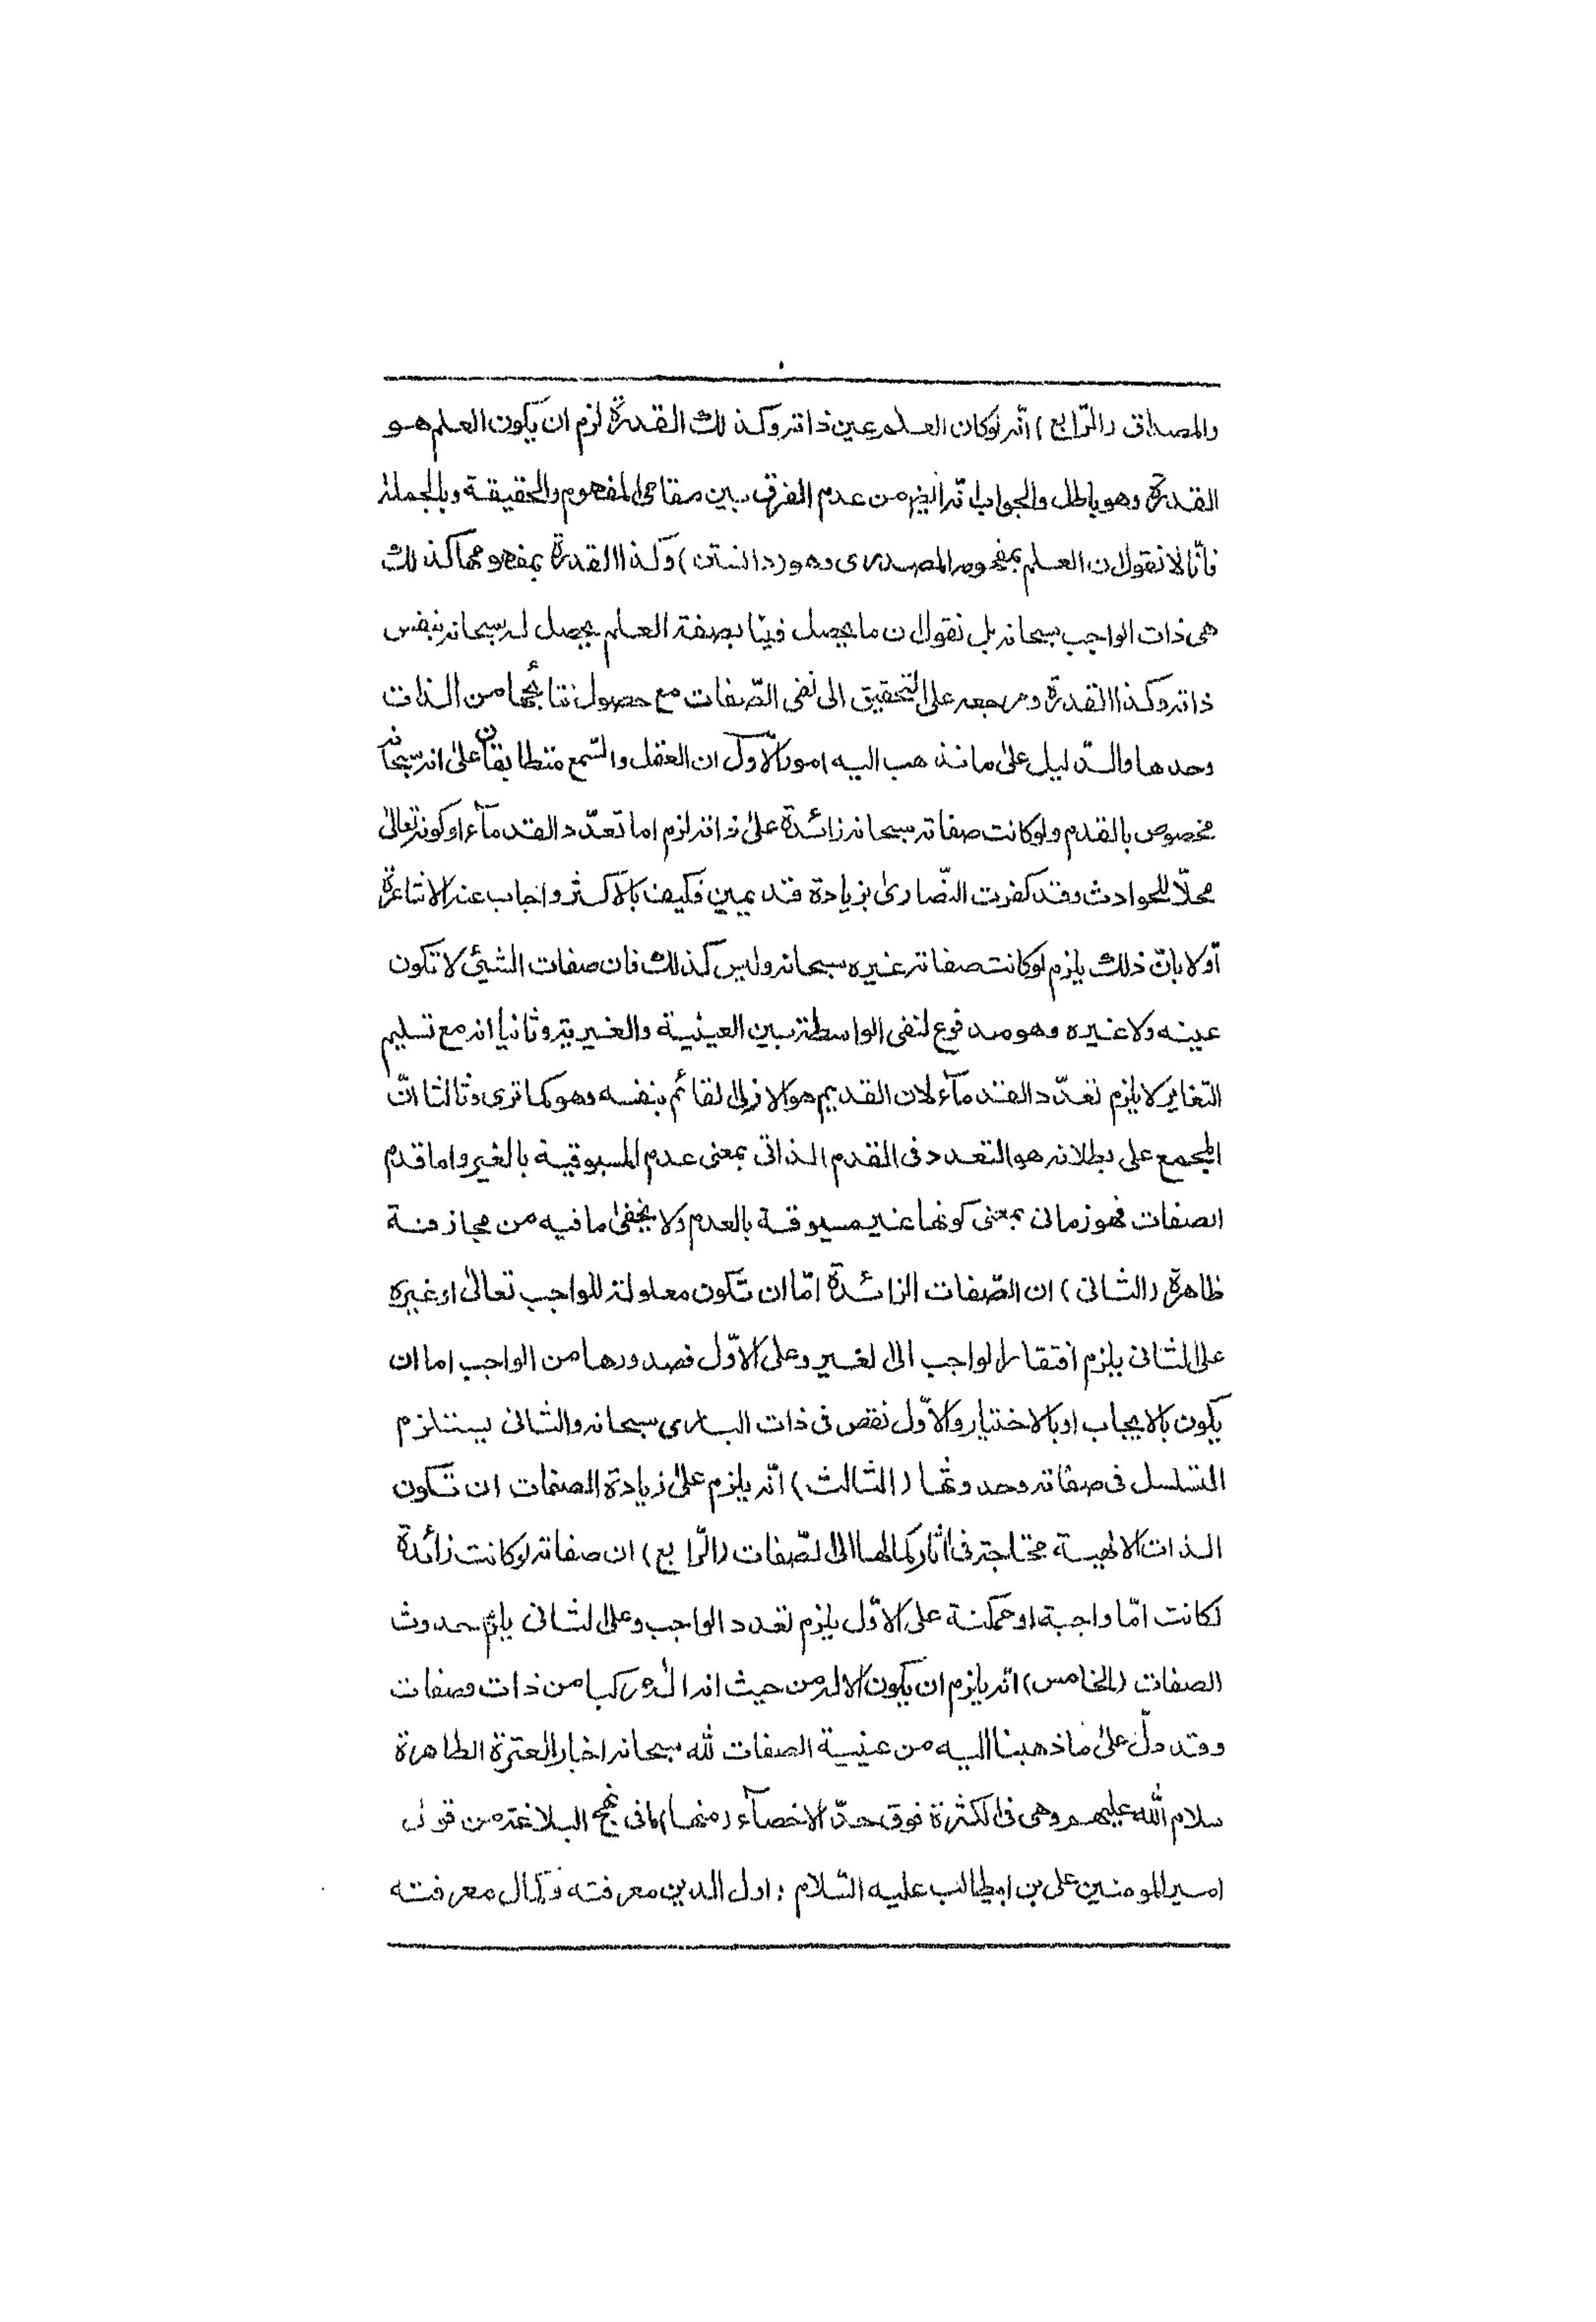 والمصداق (الرّابع) انّه لو كان العلم عين ذاته وكذلك القدرة لزم ان يكون العلم هو
القدرة وهو باطل والجواب انّه انضر من عدم الفرق بين مقامى المفهوم والحقيقة وبالجملة
فانّا لا نقول ان العلم بمفهومه المصدرى وهو (دانستن) وكذا القدرة بمفهومها كذلك
هى ذات الواجب سبحانه بل نقول ان ما يحصل فينا بصفة العلم يحصل له سبحانه بنفس
ذاته وكذا القدرة ومرجعه على التحقيق الى نفى الصّفات مع حصول نتائجها من الذات
وحدها والدّليل على ما نذهب اليه امور الأوّل ان العقل والسّمع متطابقان على انه سبحانه
مخصوص بالقدم ولو كانت صفاته سبحانه زائدة على ذاته لزم اما تعدّد القدمآء او كونه تعالى
محلّا للحوادث وقد كفرت النّصارى بزيادة قديمين فكيف بالأكثر واجاب عنه الاشاعرة
اوّلا بانّ ذلك يلزم لو كانت صفاته غيره سبحانه وليس كذلك فان صفات الشيئ لا تكون
عينه ولا غيره وهو مدفوع لنفى الواسطة بين العينية والغيريته وثانيا انه مع تسليم
التغاير لا يلزم تعدّد القدمآء لان القديم هو الازلى القائم بنفسه وهو كما ترى وثالثا انّ
المجمع على بطلانه هو التعدد فى القدم الذاتى بمعنى عدم المسبوقية بالغير واما قدم
الصفات فهو زمانى بمعنى كونها غير مسبوقة بالعدم ولا يخفى ما فيه من مجازفة
ظاهرة (الثانى) ان الصّفات الزائدة امّا ان تكون معلولة للواجب تعالى او غيره
على الثانى يلزم افتقار الواجب الى الغير وعلى الاوّل فصدورها من الواجب اما ان
يكون بالايجاب او بالاختيار والاوّل نقص فى ذات البارى سبحانه والثانى يستلزم
التسلسل فى صفاته وحدوثها (الثالث) انّه يلزم على زيادة الصفات ان تكون
الذات الالهية محتاجة فى اثار كمالها الى الصّفات (الرّابع) ان صفاته لو كانت زائدة
لكانت امّا واجبة او ممكنة على الاوّل يلزم تعدد الواجب وعلى الثانى يلزم حدوث
الصفات (الخامس) انّه يلزم ان يكون الاله من حيث انه اله مركبا من ذات وصفات
وقد دلّ على ما ذهبنا اليه من عينية الصفات لله سبحانه اخبار العترة الطاهرة
سلام الله عليهم وهى فى الكثرة فوق حدّ الاحصآء (منها) ما فى نهج البلاغة من قول
امير المومنين على بن ابيطالب عليه السّلام : اول الدين معرفته وكمال معرفته